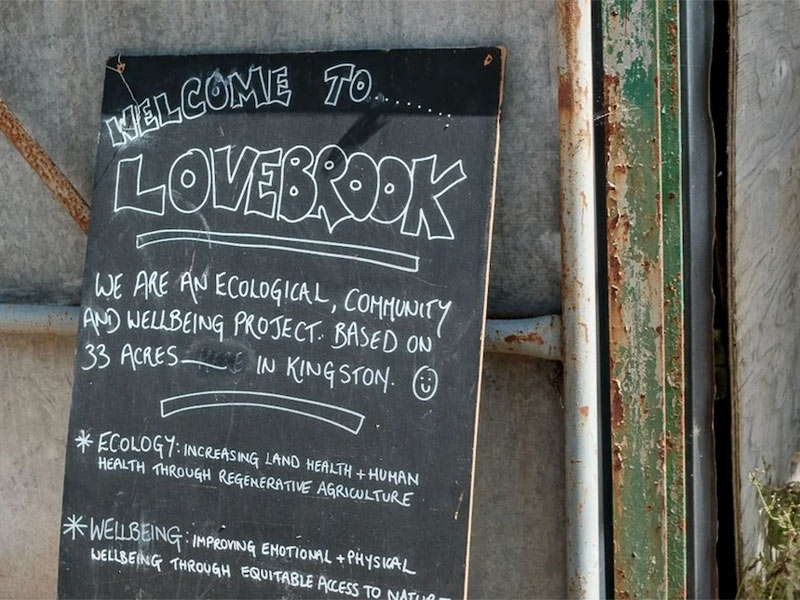 WELCOME TO........
LOVEBROOK
WE ARE AN ECOLOGICAL, COMMUNITY
AND WELLBEING PROJECT. BASED ON
33 ACRES — IN KINGSTON. ☺
* ECOLOGY: INCREASING LAND HEALTH + HUMAN
HEALTH THROUGH REGENERATIVE AGRICULTURE
* WELLBEING: IMPROVING EMOTIONAL + PHYSICAL
WELLBEING THROUGH EQUITABLE ACCESS TO